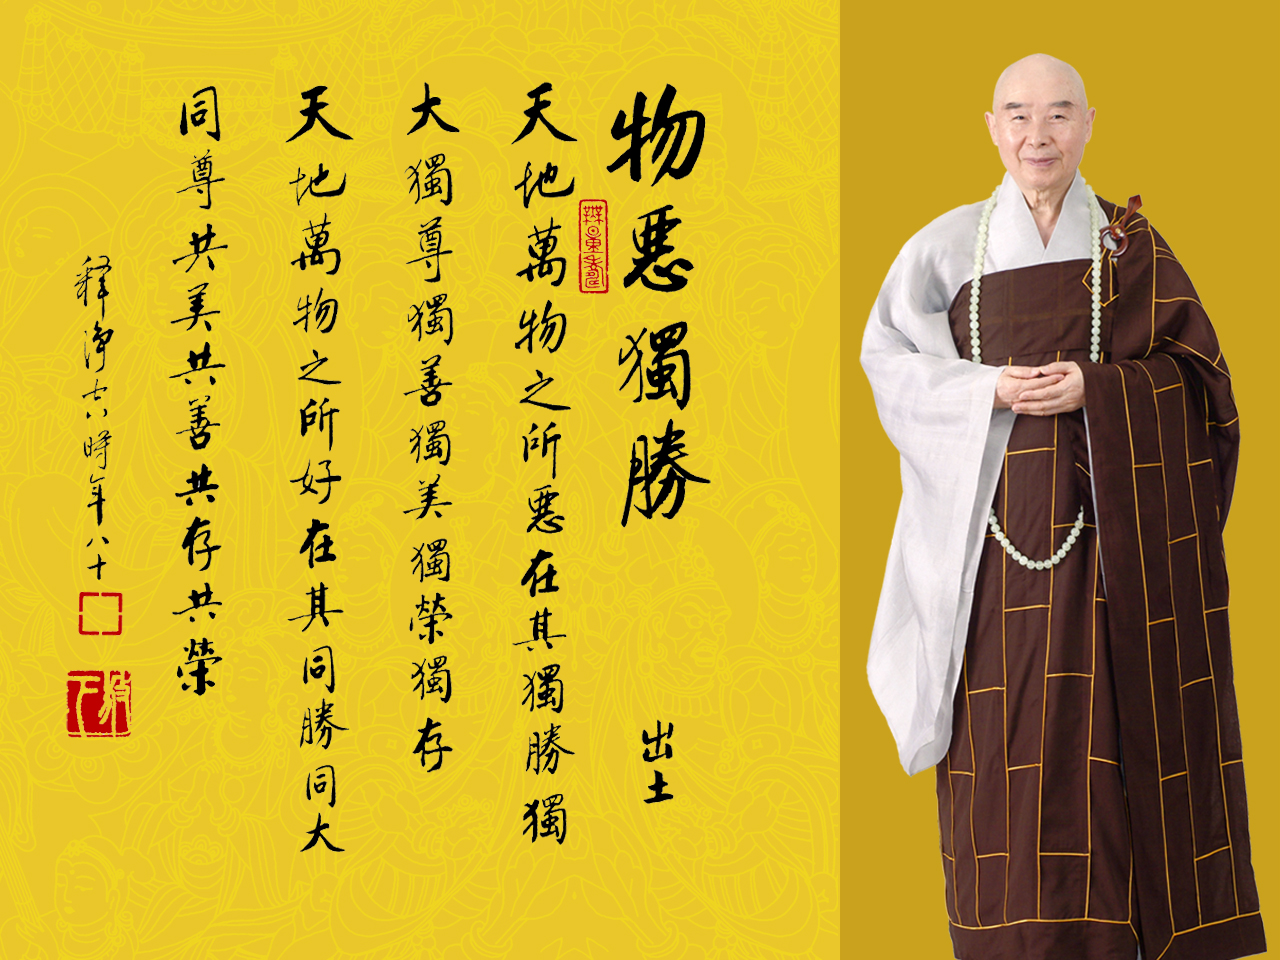 物惡獨勝
出土
天地萬物之所惡在其獨勝獨
大獨尊獨善獨美獨榮獨存
天地萬物之所好在其同勝同大
同尊共美共善共存共榮
释淨空時年八十